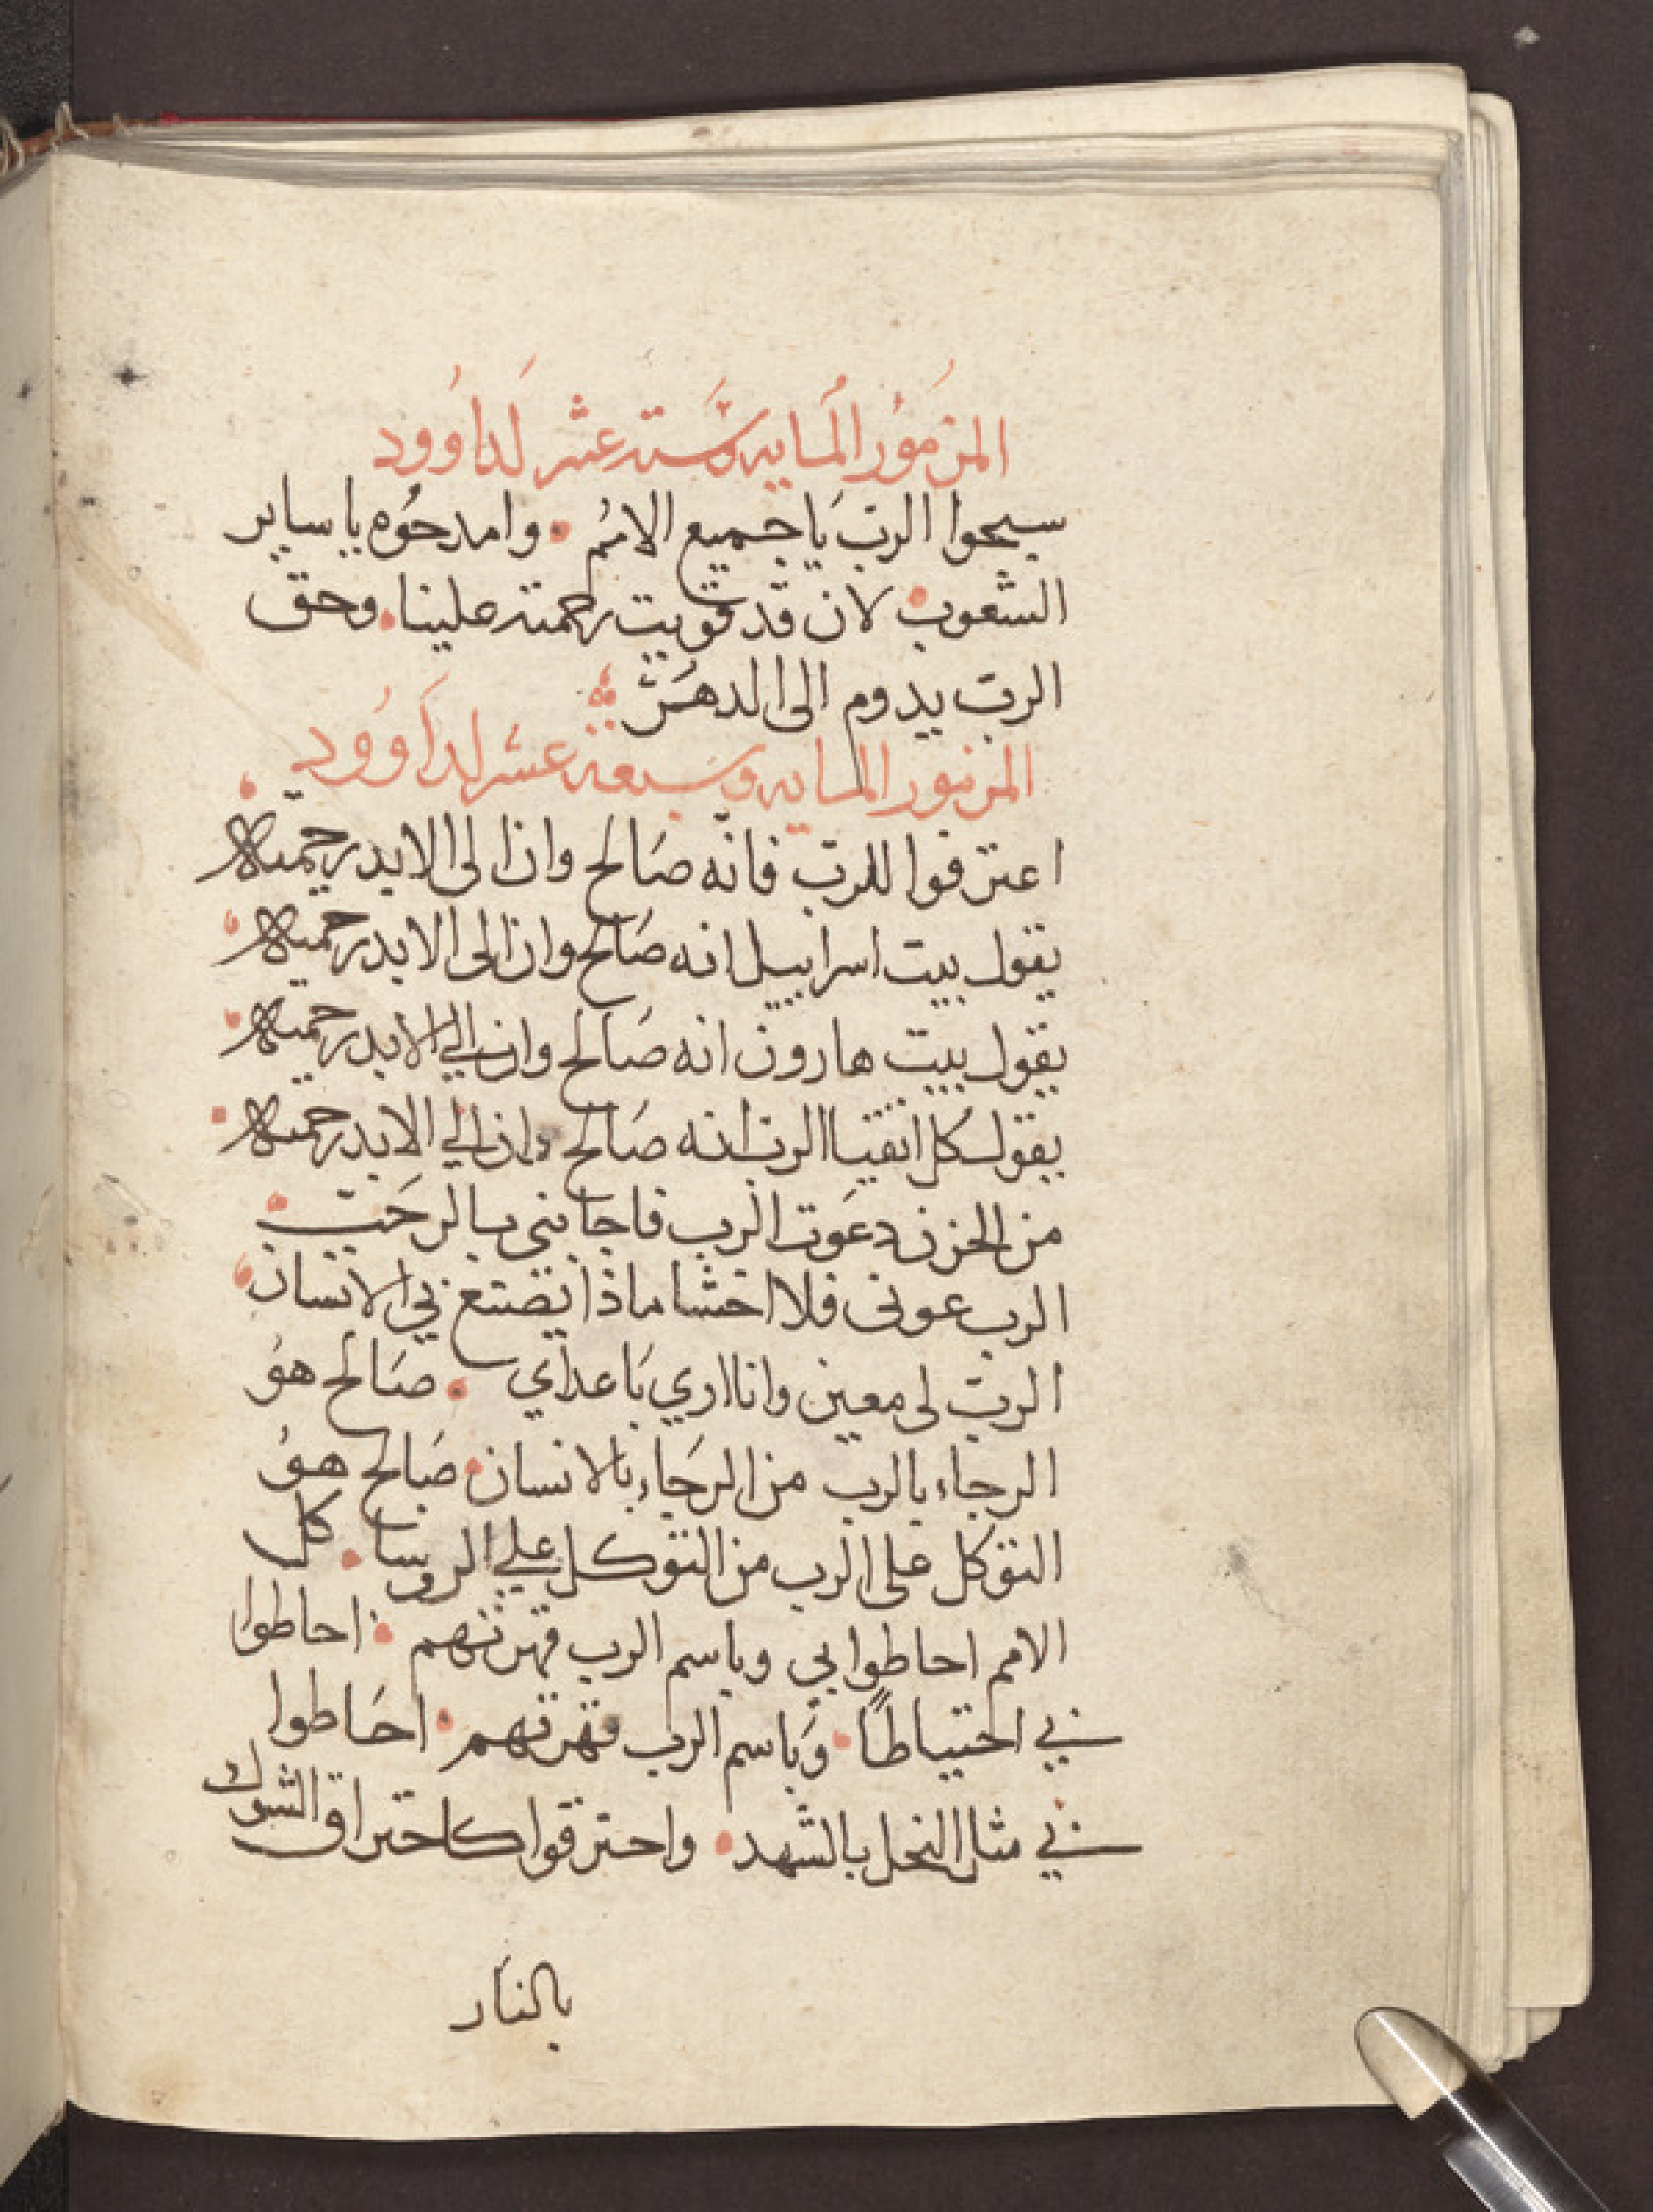 المزمور المايه وستة عشر لداوود
سبحوا الرب يا جميع الامم • وامدحوه يا ساير
الشعوب • لان قد قويت رحمته علينا • وحق
الرب يدوم الى الدهر
المزمور المايه وسبعة عشر لداوود
اعترفوا للرب فانه صالح وان الى الابد رحمته
يقول بيت اسراييل انه صالح وان الى الابد رحمته
يقول بيت هارون انه صالح وان الي الابد رحمته
يقول كل اتقيا الرب انه صالح وان الي الابد رحمته
من الحزن دعوت الرب فاجابني بالرحب
الرب عوني فلا اخشا ماذا يصنع بي الانسان
الرب لي معين وانا اري باعداي • صالح هو
الرجاء بالرب من الرجاء بالانسان • صالح هو
التوكل على الرب من التوكل علي الروسا • كل
الامم احاطوا بي وباسم الرب قهرتهم • احاطوا
بي احتياطًا • وباسم الرب قهرتهم • احاطوا
بي مثل النحل بالشهد • واحترقوا كاحتراق الشوك
بالنار